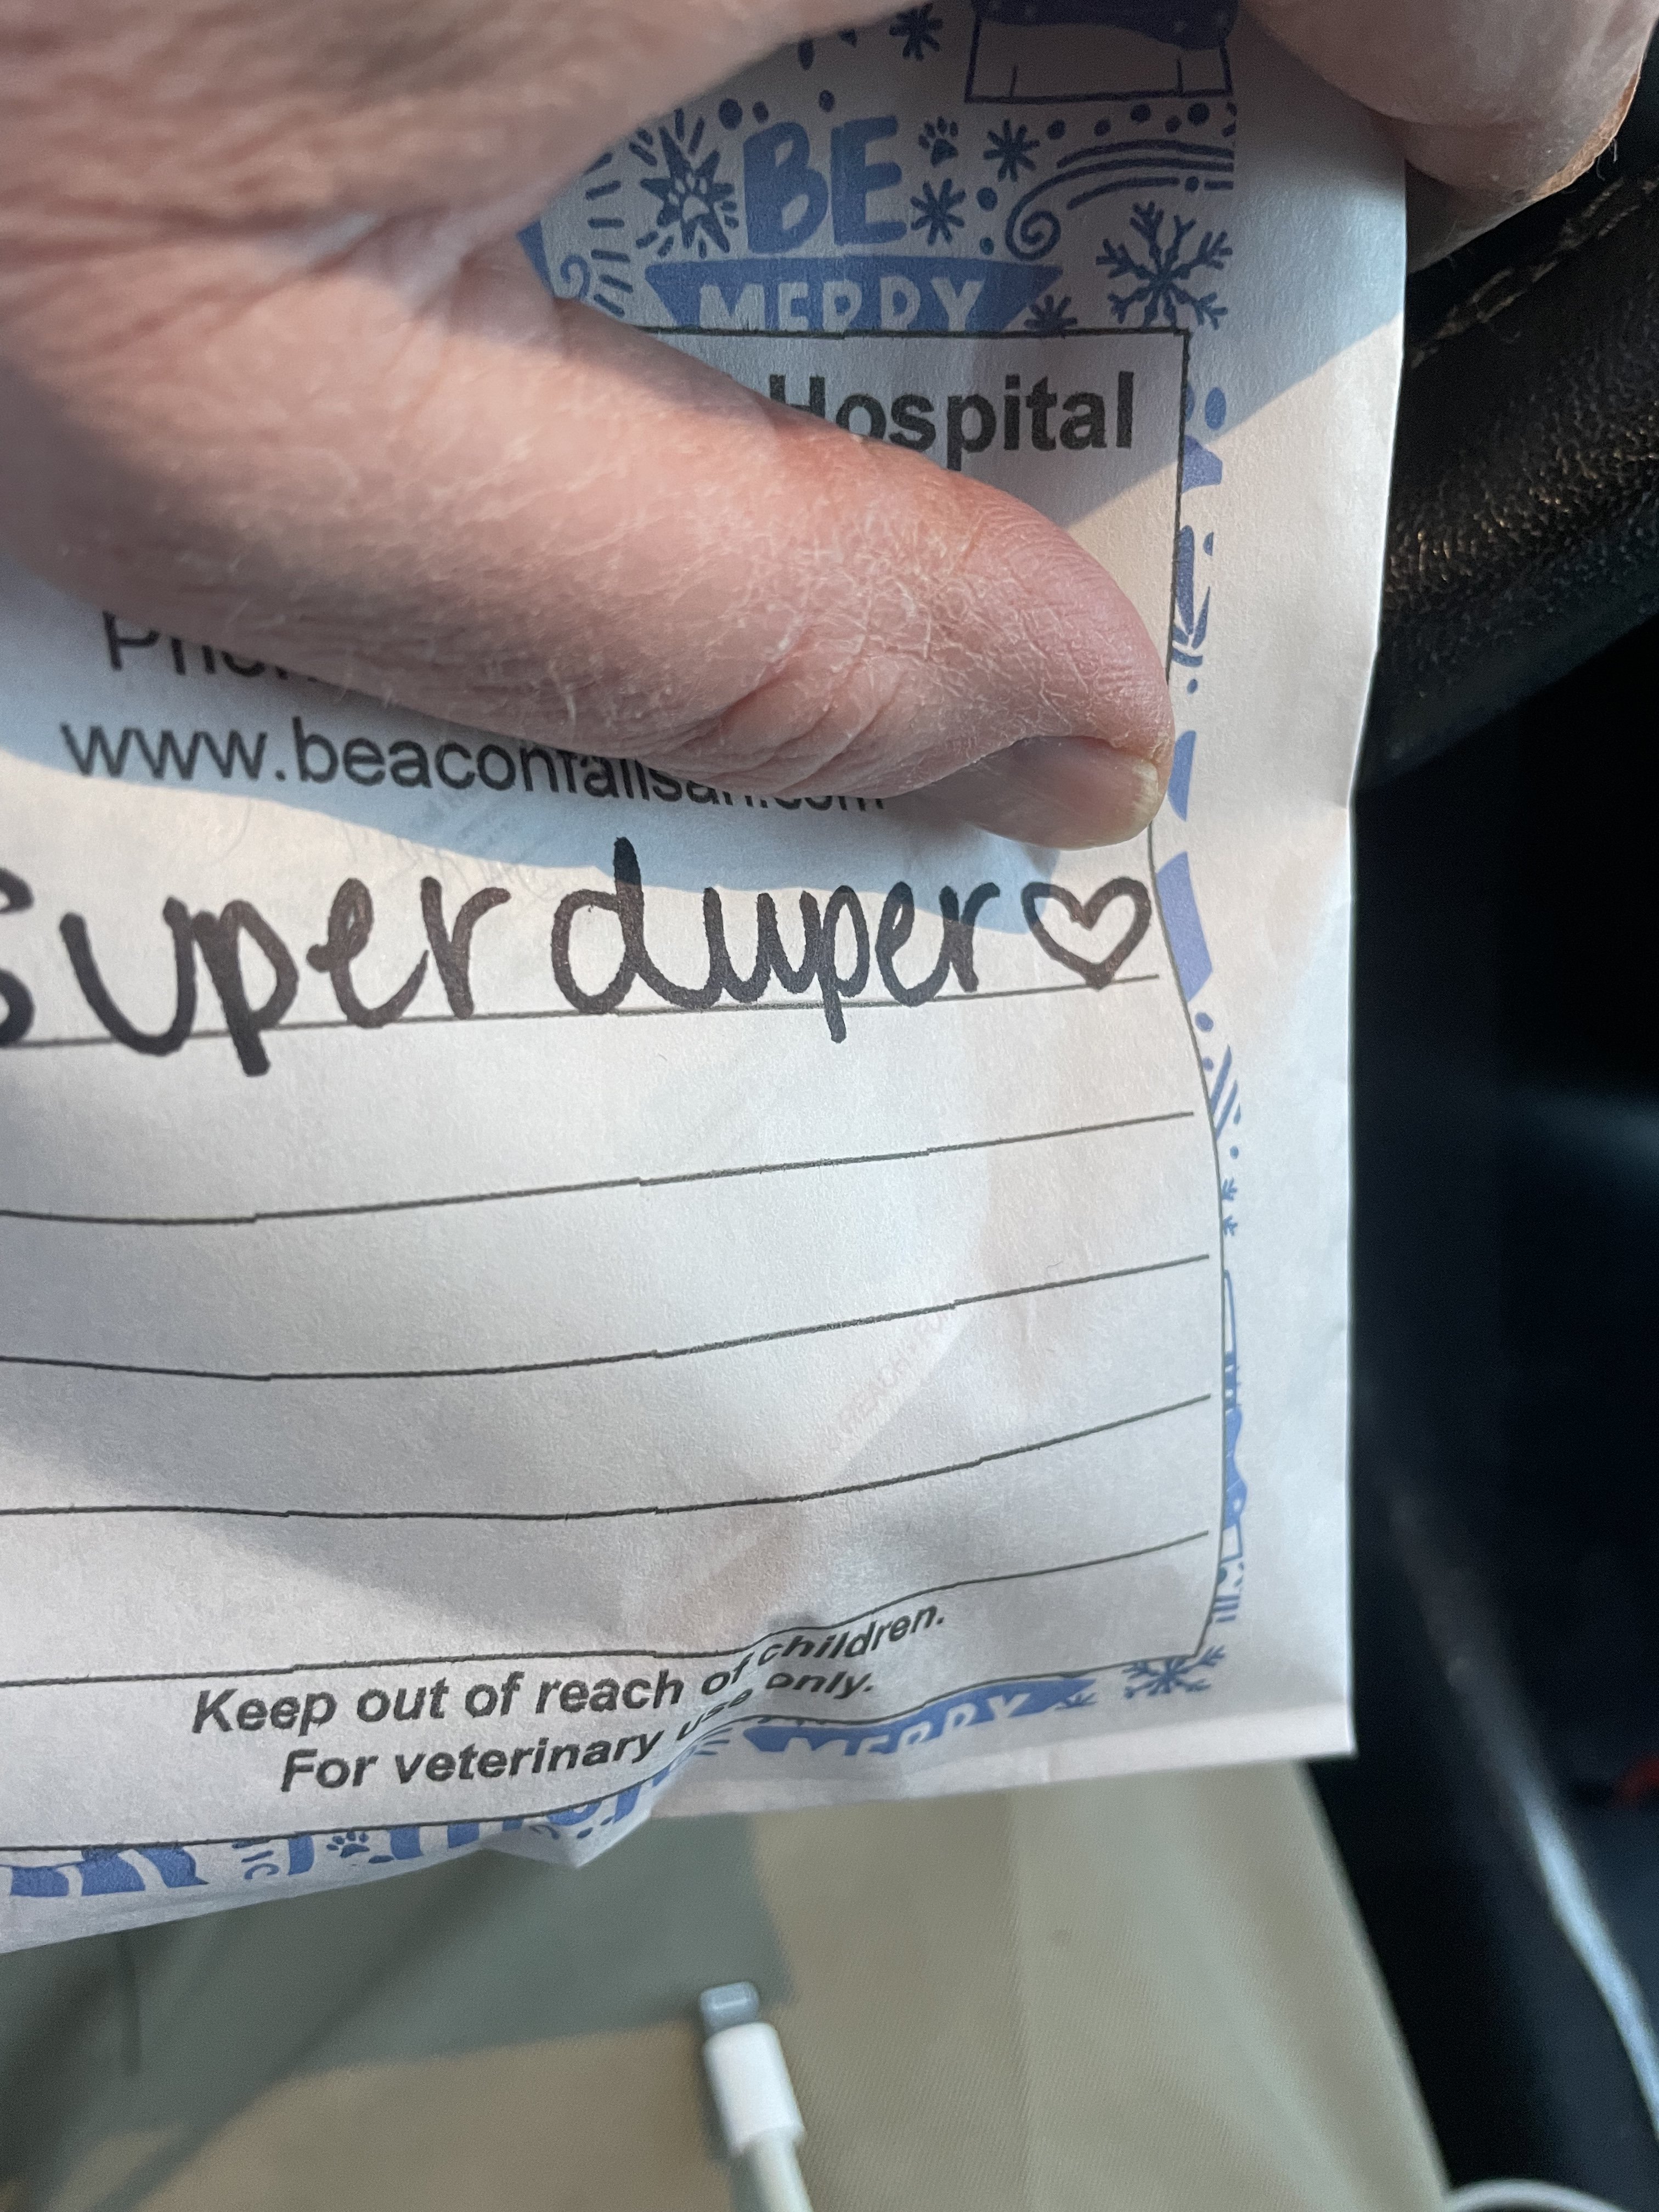 BE
MERRY
Hospital
www.beaconfallsah.com
super duper♡
Keep out of reach of children.
For veterinary use only.
MERRY